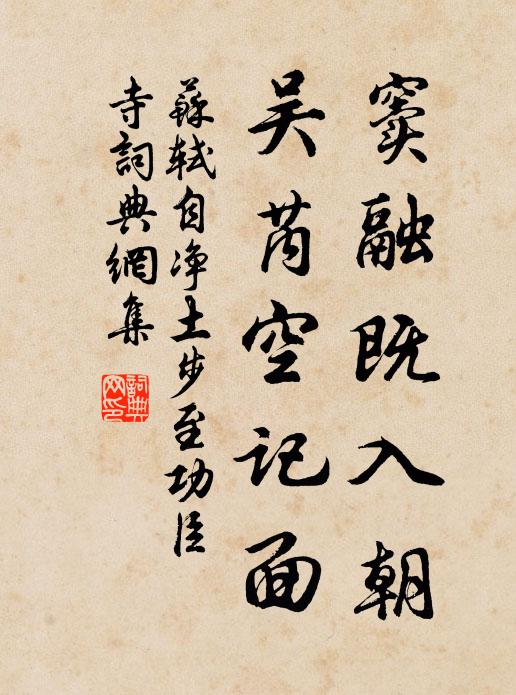 窦融既入朝
吴芮空记面
蘇軾自净土步至功臣
寺詞典網集
詞典網印